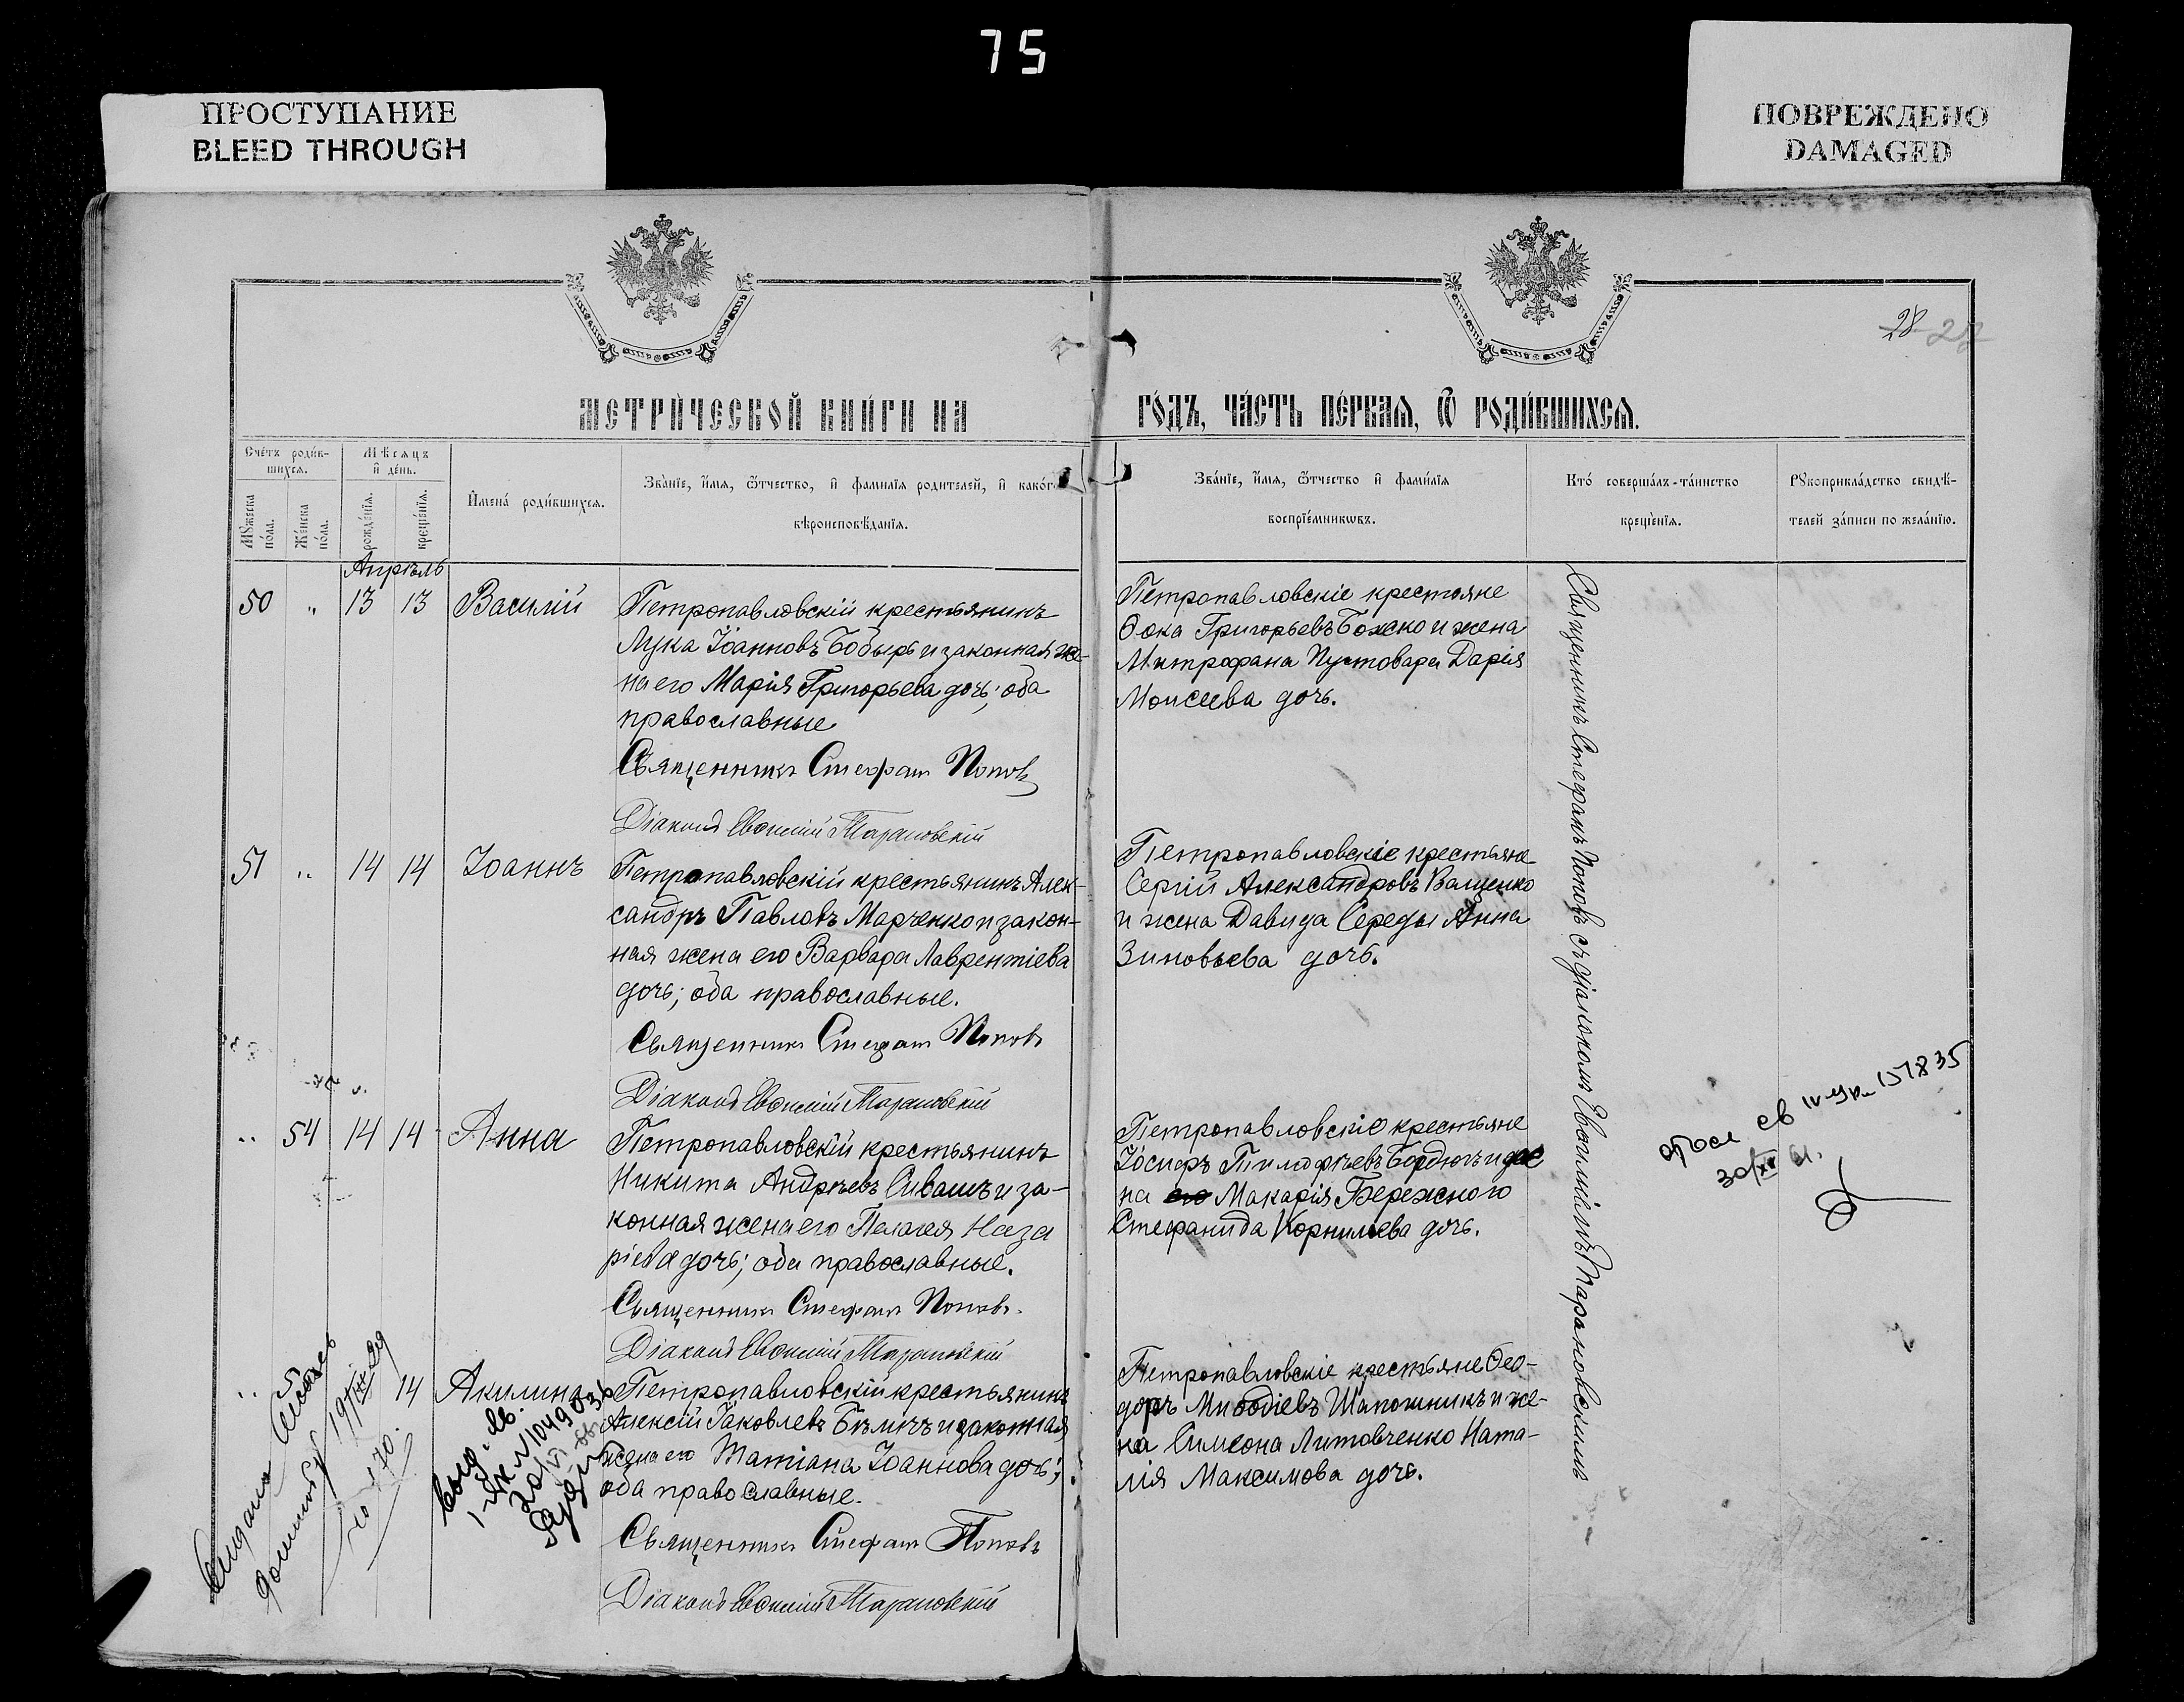 75
ПРОСТУПАНИЕ
BLEED THROUGH
ПОВРЕЖДЕНО
DAMAGED
28
27
МЕТРИ́ЧЕСКОЙ КНИ́ГИ НА
ГО́ДЪ, ЧА́СТЬ ПЕ́РВАЯ, Ѿ РОДИ́ВШИХСЯ.
Сче́тъ роди́в-
шихся.
Мѣ́сяцъ
и҆ де́нь.
Мꙋ́жеска
по́ла.
Же́нска
по́ла.
рожде́нїя.
креще́нїя.
И҆мена́ роди́вшихся.
Зва́нїе, и҆́мя, ѻ҆́тчество, и҆ фами́лїя родителей, и҆ како́г
вѣроисповѣ́данїя.
Зва́нїе, и҆́мя, ѻ҆́тчество и҆ фами́лїя
воспрїе́мникѡвъ.
Кто́ соверша́лъ та́инство
креще́нїя.
Рꙋкоприкла́дство свидѣ́-
телей за́писи по жела́нїю.
Апрѣль
50 " 13 13 Василій
Петропавловскій крестьянинъ
Лука Іоанновъ Бобырь и законная же-
на его Марія Григорьева дочь; оба
православные
Священникъ Стефанъ Поповъ
Діаконъ Евѳимій Тарановскій
Петропавловскіе крестьяне
Ѳока Григорьевъ Божко и жена
Митрофана Пустовара Дарія
Моисеева дочь.
51 " 14 14 Іоаннъ
Петропавловскій крестьянинъ Алек-
сандръ Павловъ Марченко и закон-
ная жена его Варвара Лаврентіева
дочь; оба православные.
Священникъ Стефанъ Поповъ
Діаконъ Евѳимій Тарановскій
Петропавловскіе крестьяне
Сергій Александровъ Ващенко
и жена Давида Середы Анна
Зиновьева дочь.
" 54 14 14 Анна
Петропавловскій крестьянинъ
Никита Андреевъ Сивашъ и за-
конная жена его Пелагея Наза
ріева дочь; оба православные.
Священникъ Стефанъ Поповъ.
Діаконъ Евѳимій Тарановскій
Петропавловскіе крестьяне
Іосифъ Тимофѣевъ Бордюгъ и же
на его Макарія Бережного
Стефанида Корнильева дочь.
" 14 Акилина
Петропавловскій крестьянинъ
Алексій Іаковлевъ Бѣличъ и законная
жена его Татіана Іоаннова дочь;
оба православные.
Священникъ Стефанъ Поповъ
Діаконъ Евѳимій Тарановскій
Петропавловскіе крестьяне Ѳео-
доръ Миѳодіевъ Шапошникъ и же-
на Симеона Литовченко Ната-
лія Максимова дочь.
Священникъ Стефанъ Поповъ съ діакономъ Евѳиміемъ Тарановскимъ
151835